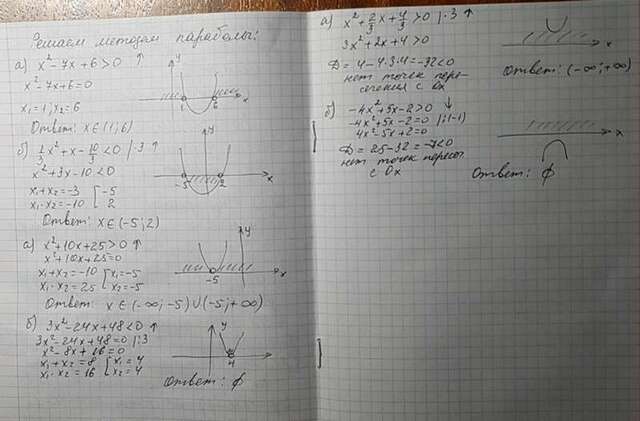 Решаем методом параболы:
а) x²-7x+6>0 ↑
x²-7x+6=0
x₁=1; x₂=6
Ответ: x∈(1;6)
y
6
x
б) 1/3x²+x-10/3<0 |·3 ↑
x²+3x-10<0
x₁+x₂=-3 [-5
x₁·x₂=-10 [2
Ответ: x∈(-5;2)
y
-5 2
x
а) x²+10x+25>0 ↑
x²+10x+25=0
x₁+x₂=-10 [x₁=-5
x₁·x₂=25 [x₂=-5
Ответ: x∈(-∞;-5)∪(-5;+∞)
y
-5
x
б) 3x²-24x+48<0 ↑
3x²-24x+48=0 |:3
x²-8x+16=0
x₁+x₂=8 [x₁=4
x₁·x₂=16 [x₂=4
Ответ: ∅
y
4
x
а) x²+2/3x+4/3>0 |·3 ↑
3x²+2x+4>0
D=4-4·3·4=-32<0
нет точек пере-
сечения с Ox
x
Ответ: (-∞;+∞)
б) -4x²+5x-2>0 ↓
-4x²+5x-2=0 |:(-1)
4x²-5x+2=0
D=25-32=-7<0
нет точек пересеч.
с Ox
x
Ответ: ∅